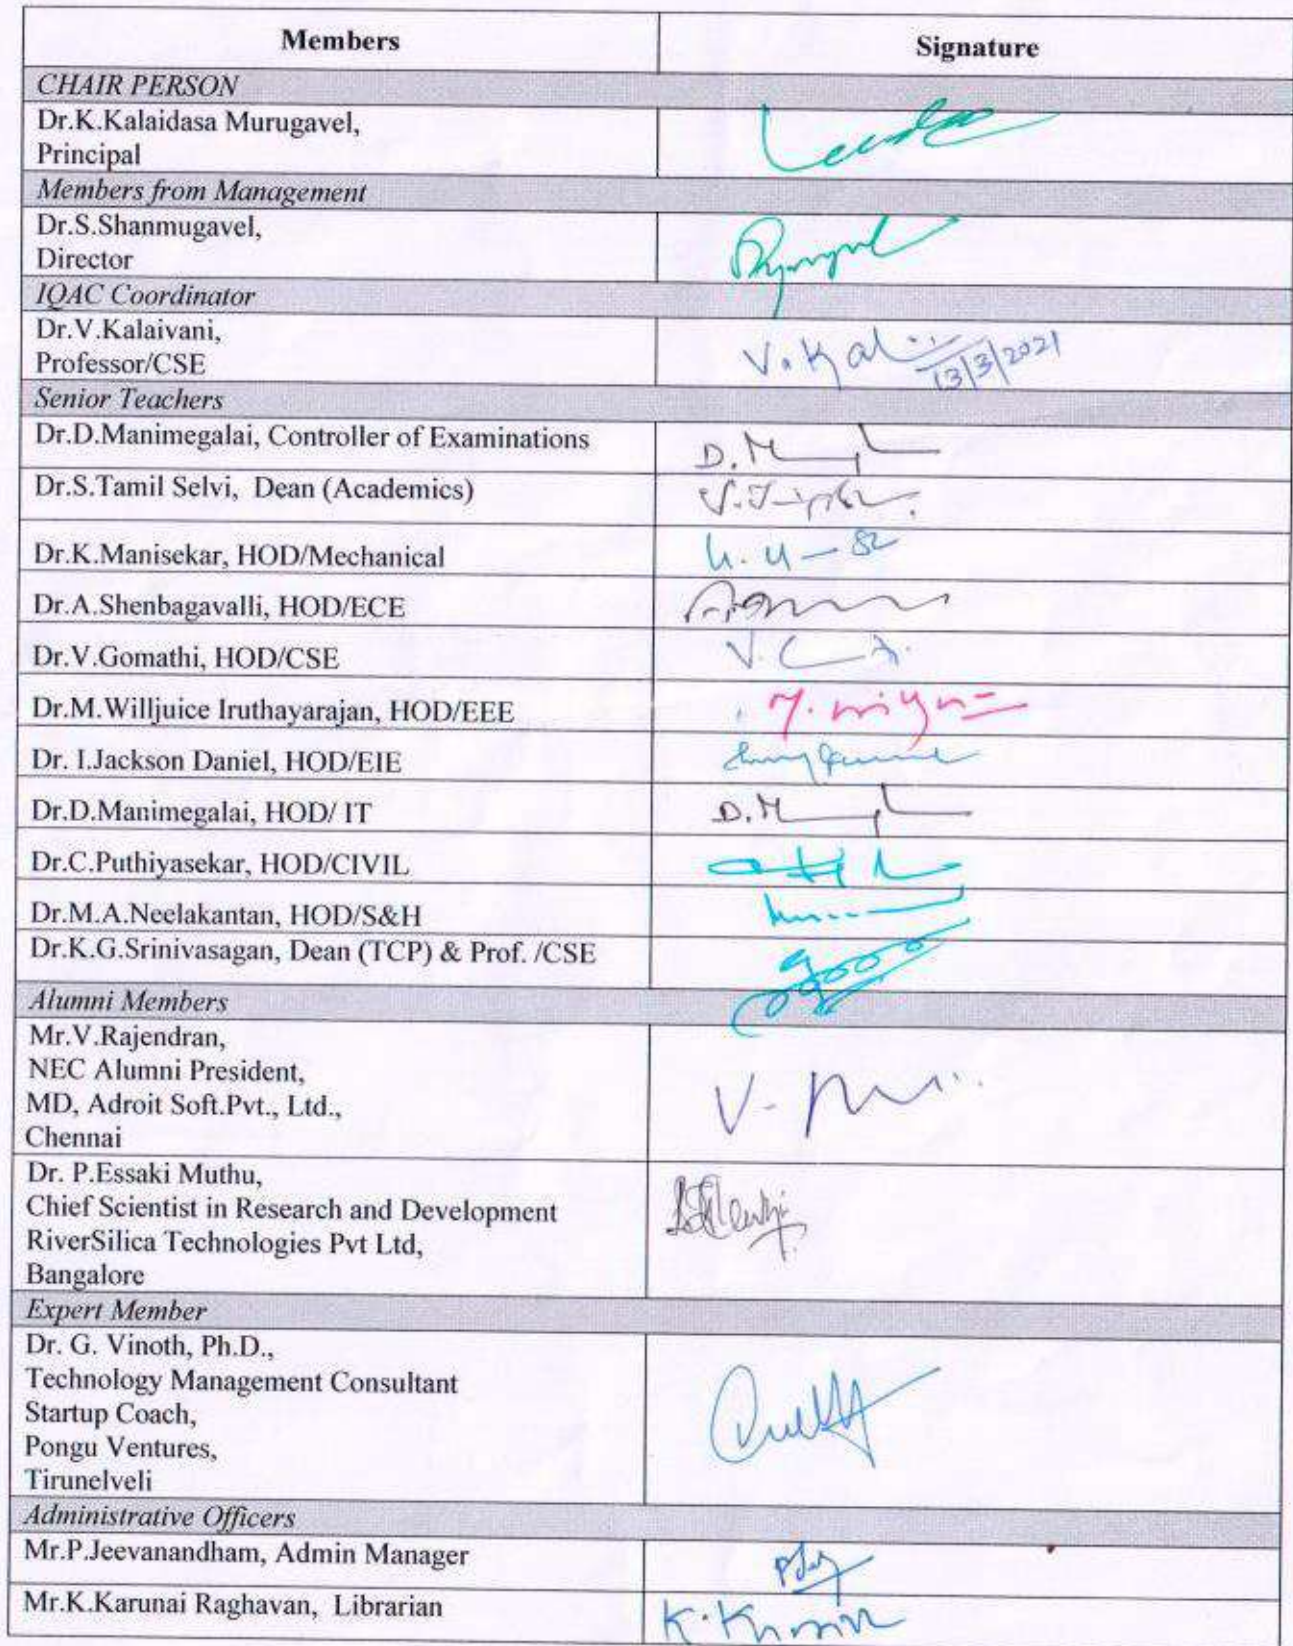 Members
Signature
CHAIR PERSON
Dr.K.Kalaidasa Murugavel,
Principal
Members from Management
Dr.S.Shanmugavel,
Director
IQAC Coordinator
Dr.V.Kalaivani,
Professor/CSE
V. Kal
13/3/2021
Senior Teachers
Dr.D.Manimegalai, Controller of Examinations
D. M
Dr.S.Tamil Selvi, Dean (Academics)
Dr.K.Manisekar, HOD/Mechanical
Dr.A.Shenbagavalli, HOD/ECE
Dr.V.Gomathi, HOD/CSE
Dr.M.Willjuice Iruthayarajan, HOD/EEE
Dr. I.Jackson Daniel, HOD/EIE
Dr.D.Manimegalai, HOD/ IT
D. M
Dr.C.Puthiyasekar, HOD/CIVIL
Dr.M.A.Neelakantan, HOD/S&H
Dr.K.G.Srinivasagan, Dean (TCP) & Prof. /CSE
Alumni Members
Mr.V.Rajendran,
NEC Alumni President,
MD, Adroit Soft.Pvt., Ltd.,
Chennai
Dr. P.Essaki Muthu,
Chief Scientist in Research and Development
RiverSilica Technologies Pvt Ltd,
Bangalore
Expert Member
Dr. G. Vinoth, Ph.D.,
Technology Management Consultant
Startup Coach,
Pongu Ventures,
Tirunelveli
Administrative Officers
Mr.P.Jeevanandham, Admin Manager
Mr.K.Karunai Raghavan, Librarian